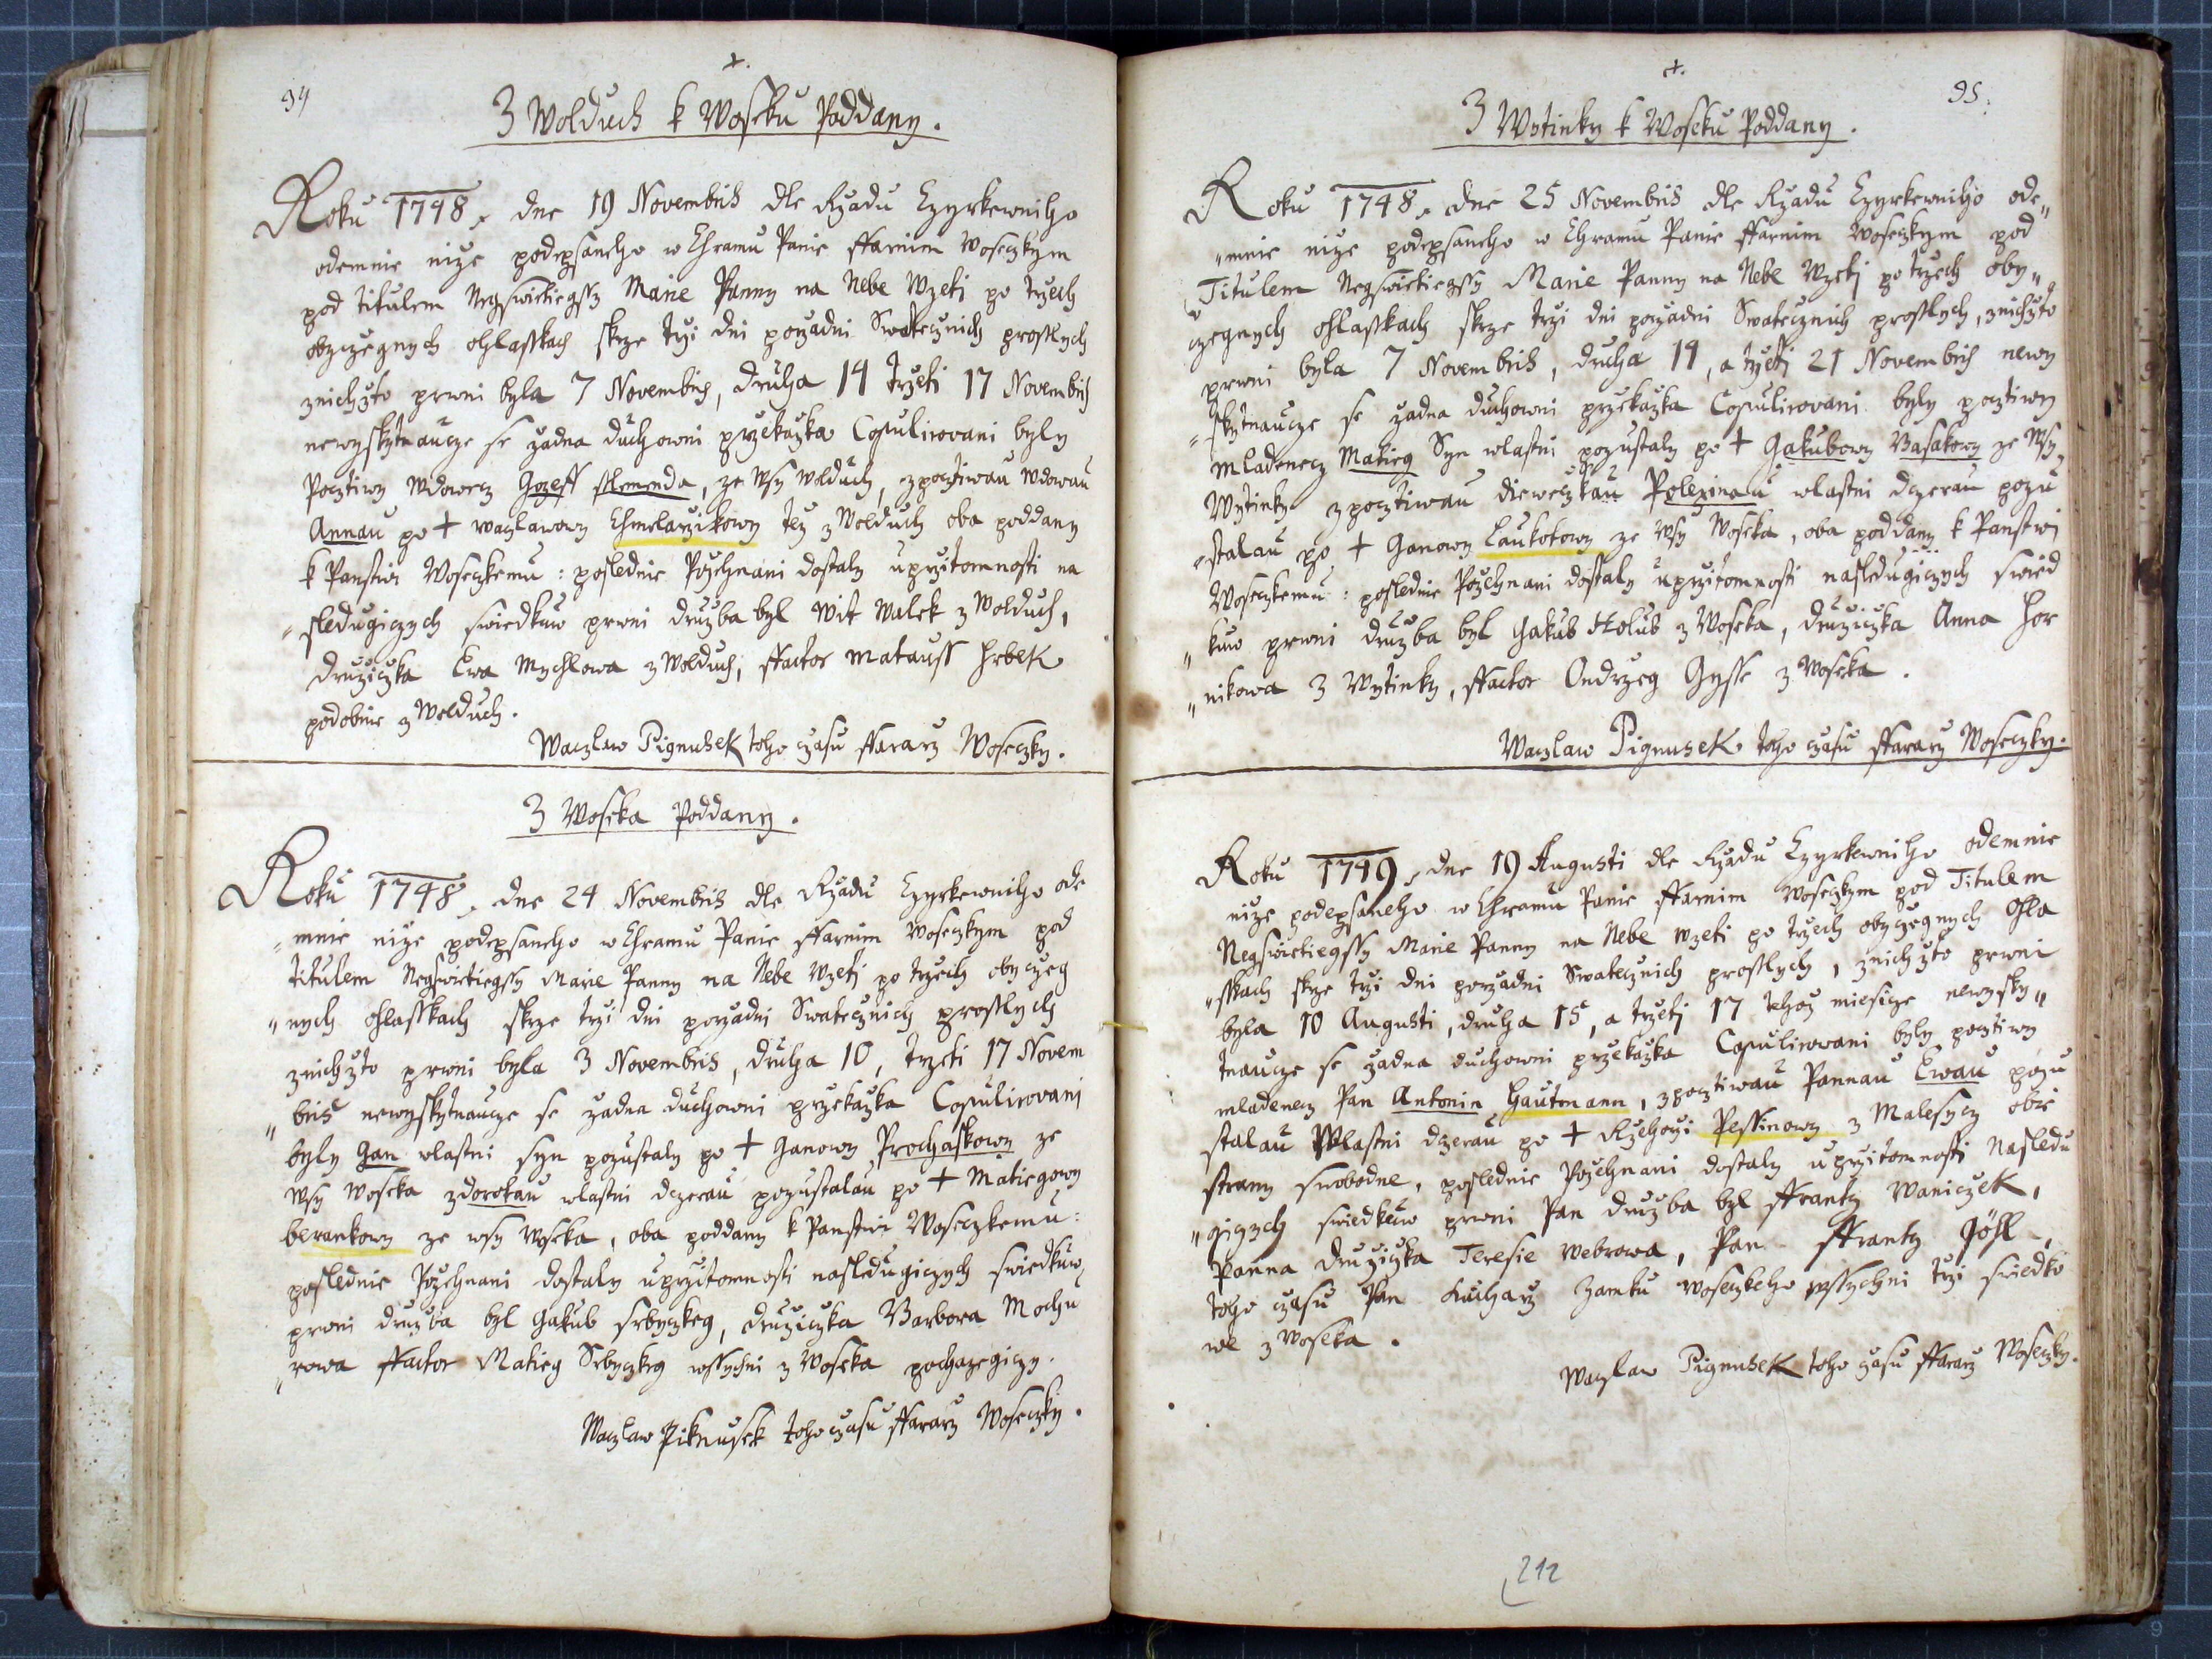 94
+.
Z Wolduch k Woseku Poddany.
Roku 1748, dne 19 Novembris dle Rzadu Czyrkewniho
odemnie nize podepsaneho w Chramu Panie ffarnim Woseczkym
pod titulem Negswietiegssy Marie Panny na Nebe Wzeti po trzech
obyczegnych ohlasskach skrze trzi dni porzadni Swatecznich prosslych
znichzto prwni byla 7 Novembris, druha 14 trzeti 17 Novembris
newyskytnaucze se zadna duchowni przekazka Copulirovani byly
Pocztiwy Wdowecz Gozeff slemenda, ze Wsy Wolduch, z pocztiwau Wdowau
Annau po + waczlawowy Chmelarzikowy tez z Wolduch oba poddany
k Panstwi Woseczkemu: poslednie Pozehnani dostaly u przitomnosti na
"sledugiczych swiedkuw prwni druzba byl Wit Walek z Wolduch,
druziczka Ewa Mychlowa z Wolduch, ffactor Matauss Hrbek
podobnie z Wolduch.
Waczlaw Pignusek toho czasu ffararz Woseczky.
Z Woseka Poddany.
Roku 1748, dne 24 Novembris dle Rzadu Czyrkewniho ode
"mnie nize podepsaneho w Chramu Panie ffarnim Woseczkym pod
titulem Negswietiegssy Marie Panny na Nebe Wzeti po trzech obyczeg
"nych ohlasskach skrze trzi dni porzadni Swatecznich prosslych
znichzto prwni byla 3 Novembris, druha 10, trzeti 17 Novem
"bris newyskytnaucze se zadna duchowni przekazka Copulirovani
byly Gan wlastni syn pozustaly po + Ganowy Prochaskowy ze
Wsy Woseka z dorotau wlastni dczerau pozustalau po + Matiegowy
berankowy ze wsy Woseka, oba poddany k Panstwi Woseczkemu:
poslednie Pozehnani dostaly u przitomnosti nasledugiczych swiedkuw,
prwni druzba byl Gakub srbeczkeg, druziczka Barbora Mochu
"rowa ffactor Matieg Srbeczkeg wssychni z Woseka pochazegiczy.
Waczlaw Piknusek toho czasu ffararz Woseczky.
95.
+.
Z Wytinky k Woseku Poddany.
Roku 1748, dne 25 Novembris dle Rzadu Czyrkewniho ode"
"mnie nize podepsaneho w Chramu Panie ffarnim Woseczkym pod
Titulem Negswietiegssy Marie Panny na Nebe Wzeti po trzech oby"
czegnych ohlasskach skrze trzi dni porzadni Swatecznich prosslych, znichzto
prwni byla 7 Novembris, druha 14, a trzeti 21 Novembris newy
"skytnaucze se zadna duchowni przekazka Copulirovani byly pocztiwy
Mladenecz Matieg Syn wlastni pozustaly po + Gakubowy Basakowy ze Wsy
Wytinky z pocztiwau dieweczkau Polexinau wlastni dczerau pozu
"stalau po + Ganowy Laukotowy ze Wsy Woseka, oba poddany k Panstwi
Woseczkemu: poslednie Pozehnani dostaly u przitomnosti nasledugiczych swied
"kuw prwni druzba byl Gakub Holub z Woseka, druziczka Anna Hor
"nikowa z Wytinky, ffactor Ondrzeg Gysse z Woseka.
Waczlaw Pignusek toho czasu ffararz Woseczky.
Roku 1749, dne 19 Augusti dle Rzadu Czyrkewniho odemnie
nize podepsaneho w Chramu Panie ffarnim Woseczkym pod Titulem
Negswietiegssy Marie Panny na Nebe wzeti po trzech obyczegnych Ohla
"sskach skrze trzi dni porzadni Swatecznich prosslych, znichzto prwni
byla 10 Augusti, druha 15, a trzeti 17 tehoz miesicze newysky"
tnaucze se zadna duchowni przekazka Copulirovani byly pocztiwy
mladenecz Pan Antonin Hautmann, z pocztiwau Pannau Ewau pozu
stalau Wlastni dczerau po + Rzehorzi Pessinowy z Malesycz obie
strany swobodne, poslednie Pozehnani dostaly u przitomnosti Nasledu
"giczych swiedkuw prwni Pan druzba byl ffrantz Waniczek,
Panna druziczka Teresie Webrowa, Pan ffrantz Göhl,
toho czasu Pan Kucharz Zamku Woseczkeho wssychni trzi swiedko
we z Woseka.
Waczlaw Pignusek toho czasu ffararz Woseczky.
212